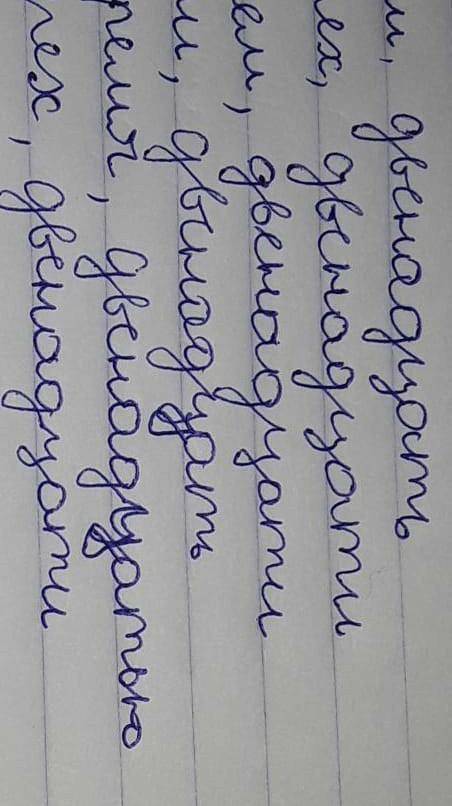 и, двенадцать
ех, двенадцати
ем, двенадцати
и, двенадцать
ремя, двенадцатью
рех, двенадцати